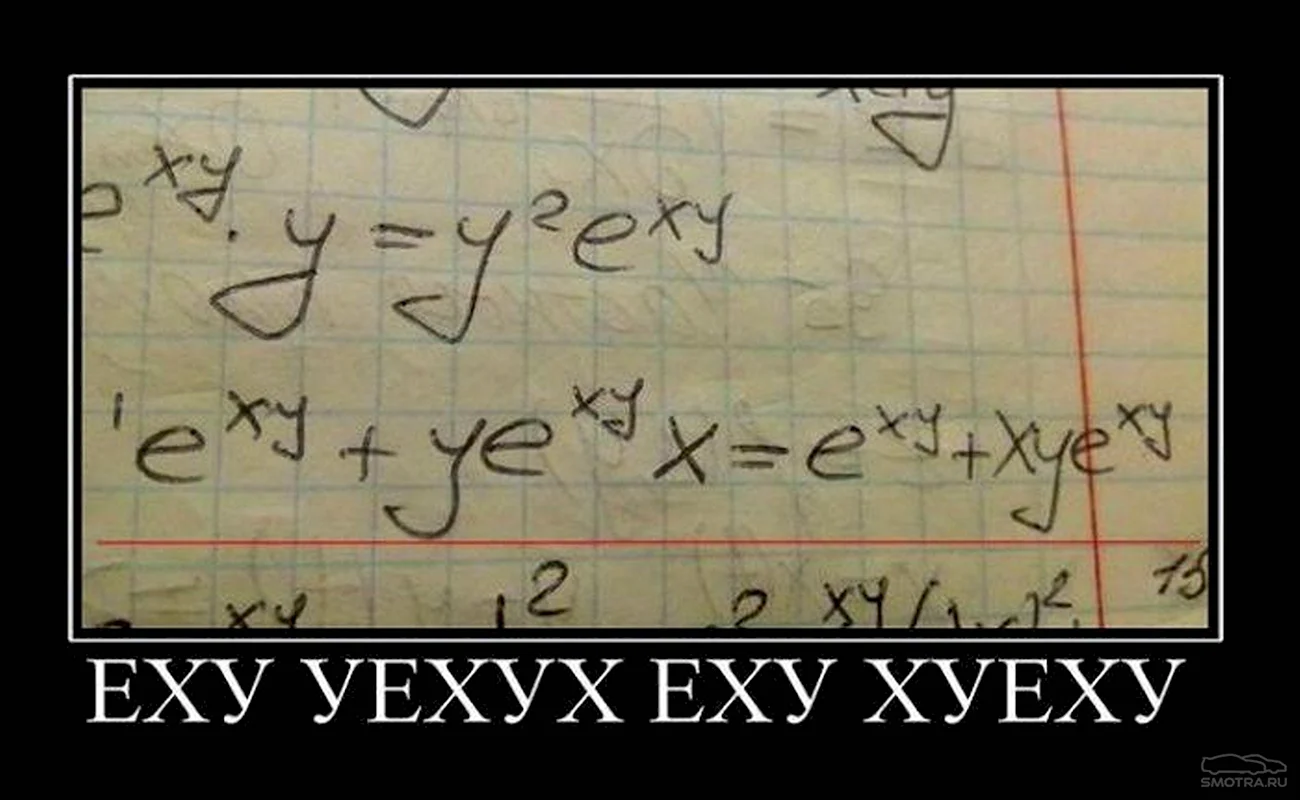 xy · y = y²e^xy
e^xy + ye^xy x = e^xy + xye^xy
ЕХУ УЕХУХ ЕХУ ХУЕХУ
SMOTRA.RU